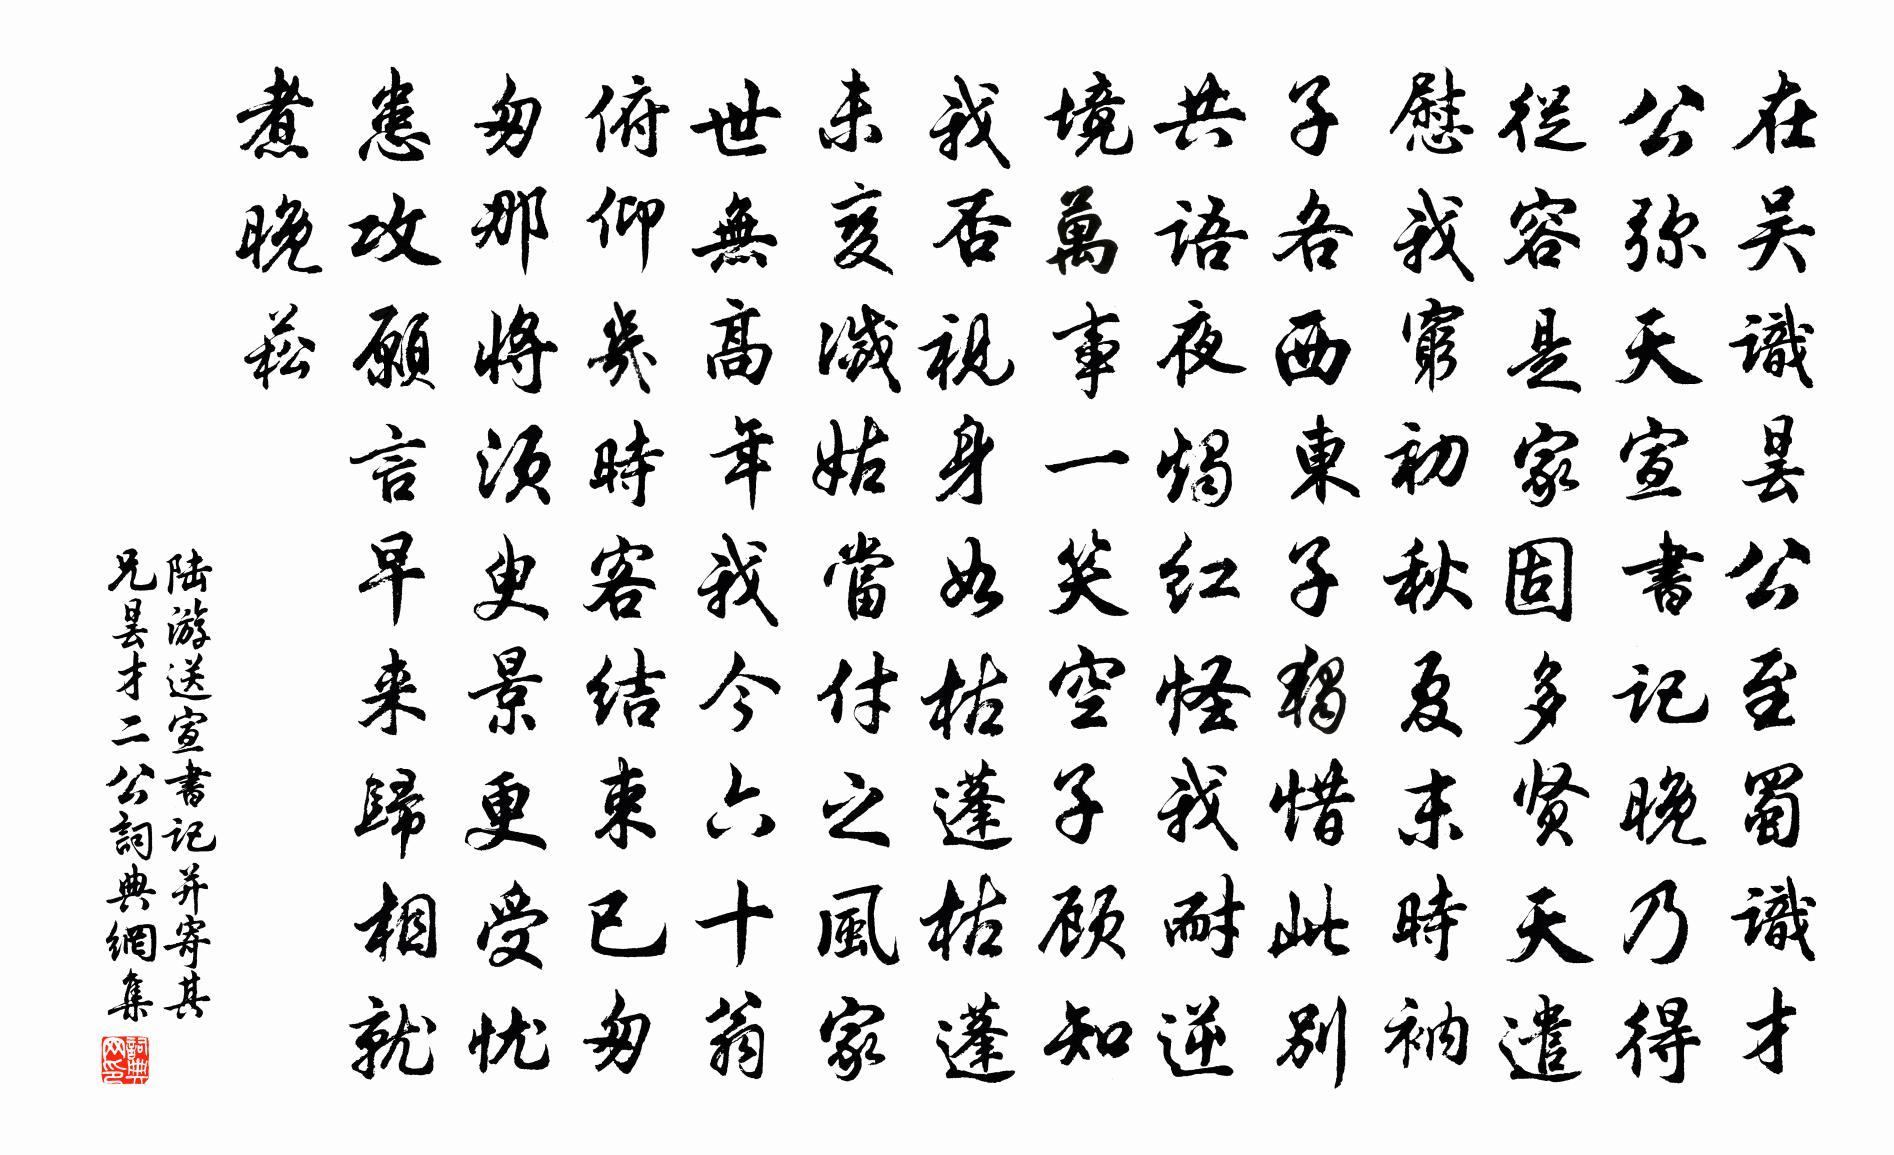 在吴識昙公至蜀識才
公弥天宣書記晚乃得
從容是家固多贤天遣
慰我窮初秋夏末時衲
子各西東子獨惜此別
共語夜燭红怪我耐逆
境萬事一笑空子顾知
我否視身如枯蓬枯蓬
未变滅姑當付之風家
世無高年我今六十翁
俯仰幾時客结束已匆
匆那將須臾景更受忧
患攻願言早来歸相就
煮晚菘
陆游送宣書记并寄其
兄昙才二公詞典網集